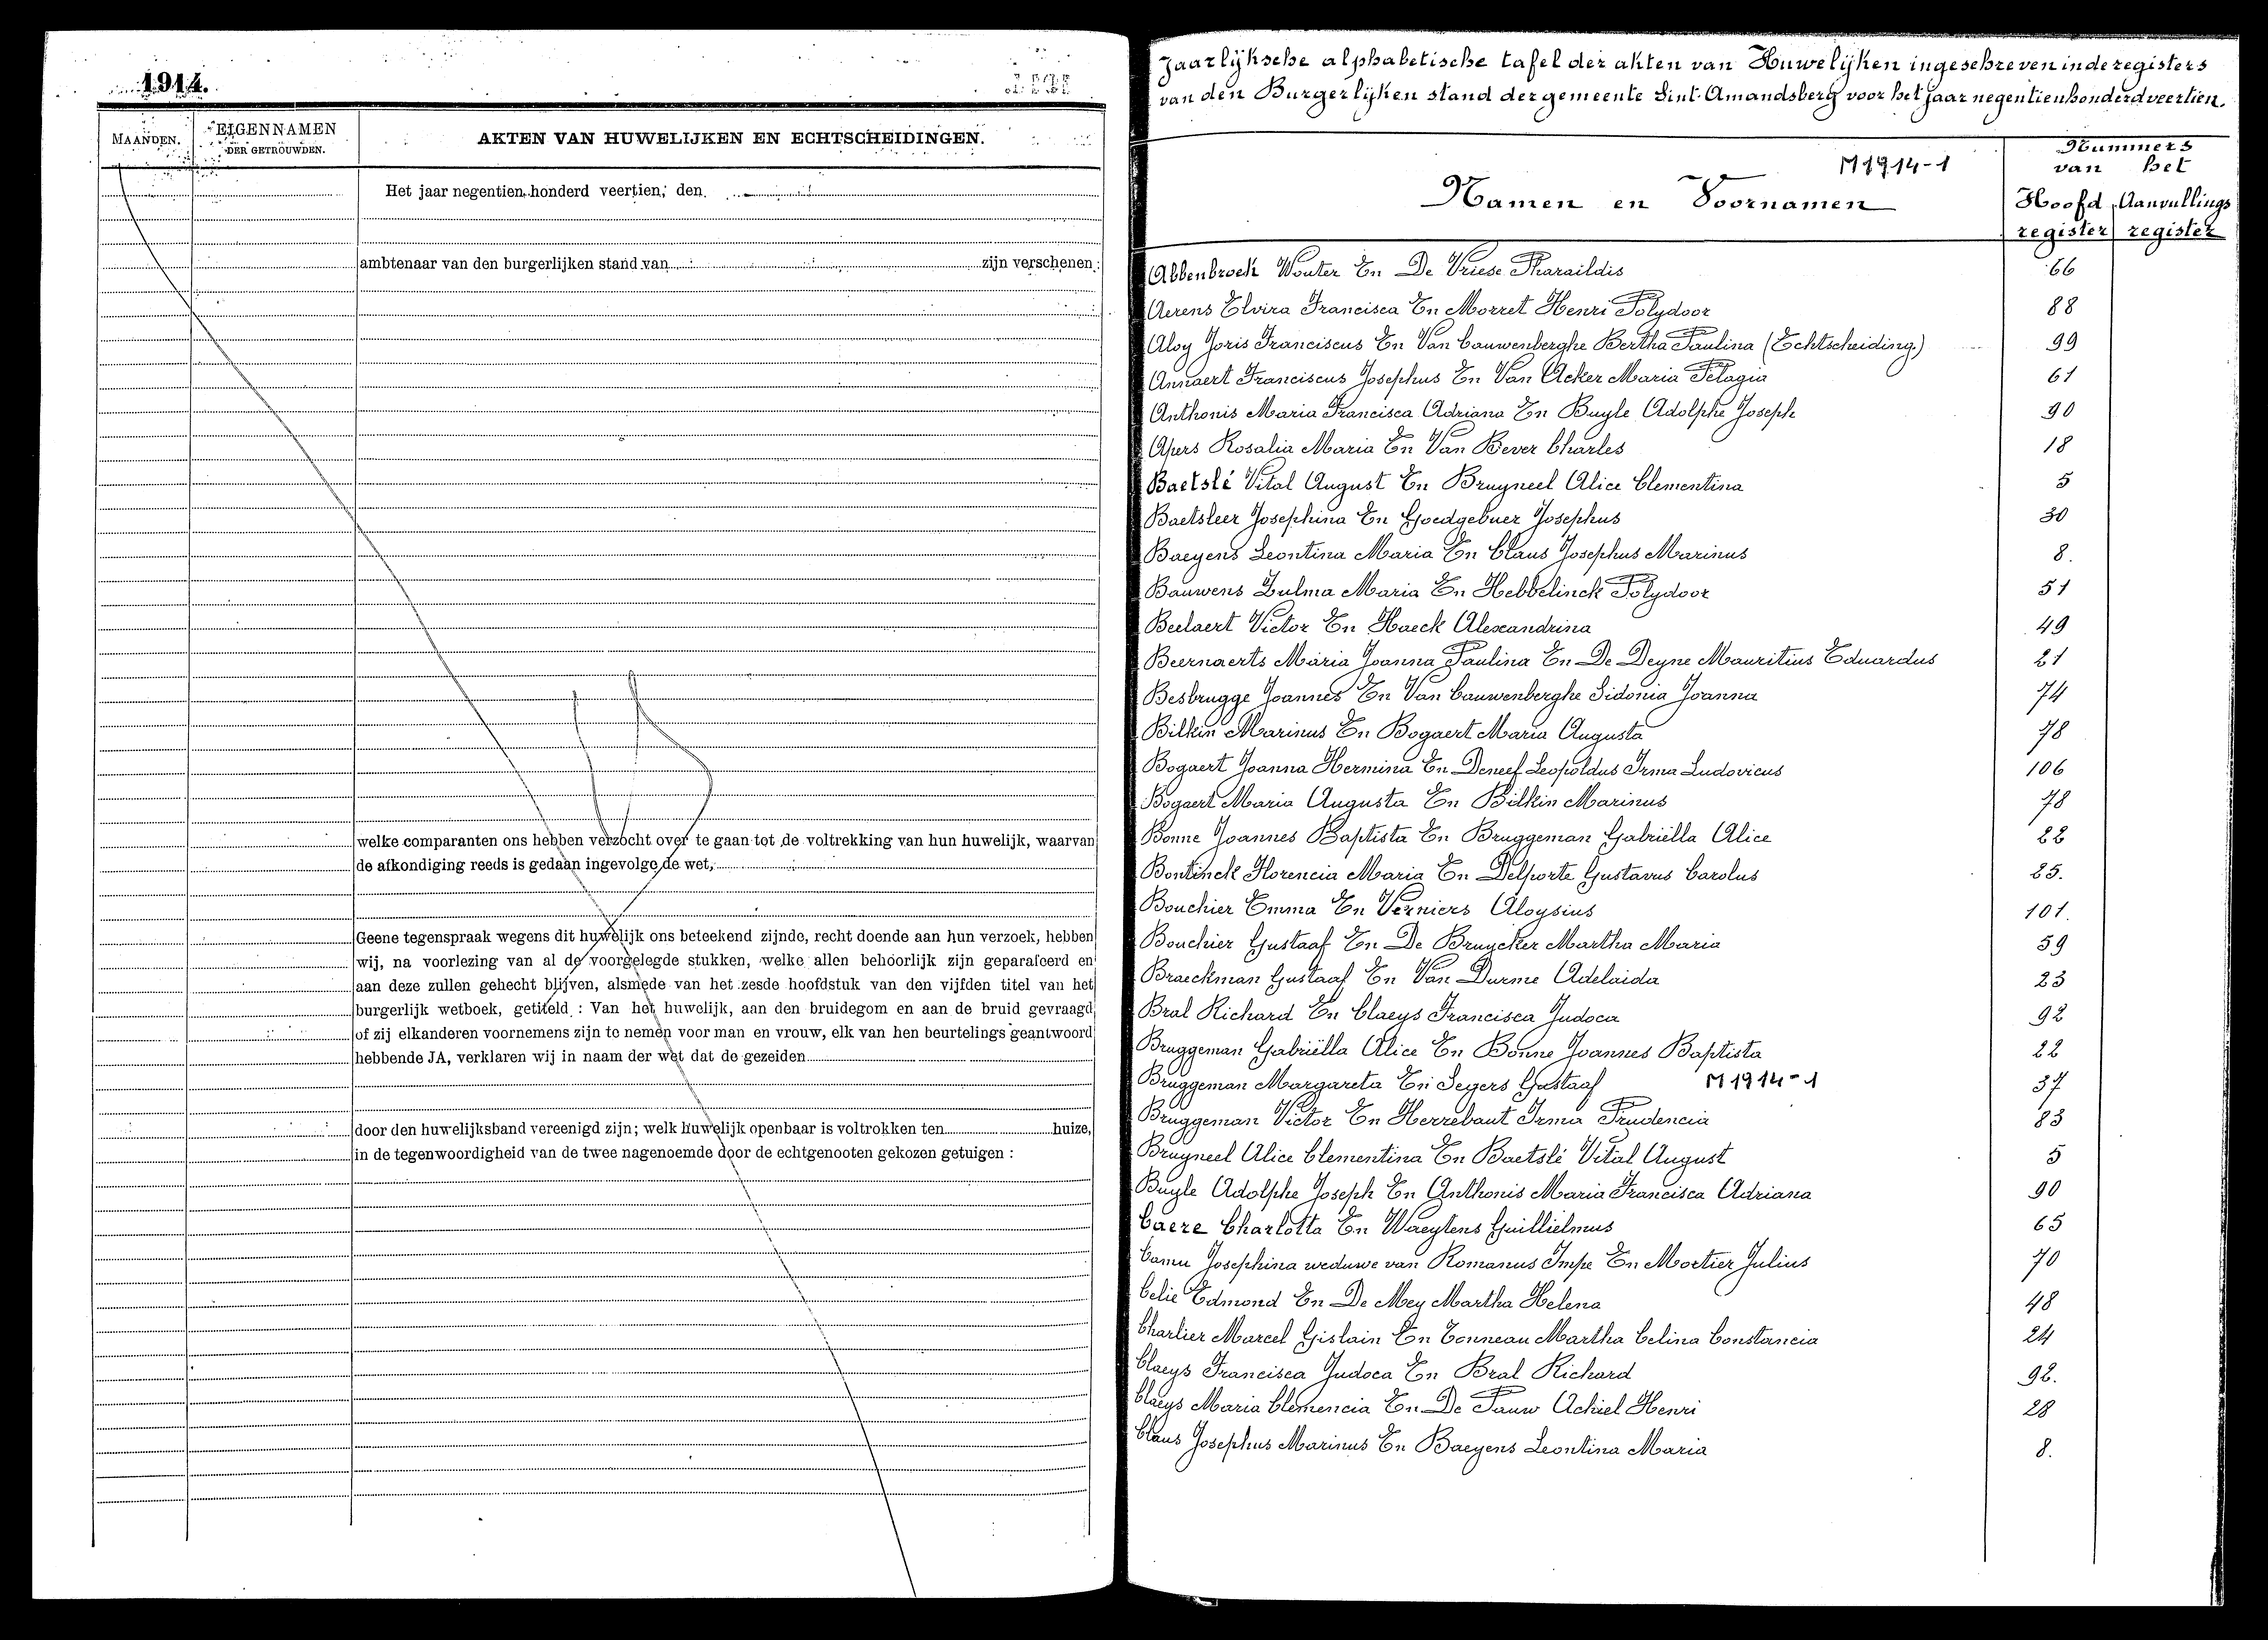 1914.
MAANDEN.
EIGENNAMEN
DER GETROUWDEN.
AKTEN VAN HUWELIJKEN EN ECHTSCHEIDINGEN.
Het jaar negentien honderd veertien, den
ambtenaar van den burgerlijken stand van zijn verschenen:
welke comparanten ons hebben verzocht over te gaan tot de voltrekking van hun huwelijk, waarvan
de afkondiging reeds is gedaan ingevolge de wet,
Geene tegenspraak wegens dit huwelijk ons beteekend zijnde, recht doende aan hun verzoek, hebben
wij, na voorlezing van al de voorgelegde stukken, welke allen behoorlijk zijn geparafeerd en
aan deze zullen gehecht blijven, alsmede van het zesde hoofdstuk van den vijfden titel van het
burgerlijk wetboek, getiteld : Van het huwelijk, aan den bruidegom en aan de bruid gevraagd
of zij elkanderen voornemens zijn te nemen voor man en vrouw, elk van hen beurtelings geantwoord
hebbende JA, verklaren wij in naam der wet dat de gezeiden
door den huwelijksband vereenigd zijn; welk huwelijk openbaar is voltrokken ten huize,
in de tegenwoordigheid van de twee nagenoemde door de echtgenooten gekozen getuigen :
Jaarlijksche alphabetische tafel der akten van Huwelijken ingeschreven in de registers
van den Burgerlijken stand der gemeente Sint-Amandsberg voor het jaar negentienhonderd veertien.
M1914-1
Namen en Voornamen
Nummers
van het
Hoofd Aanvullings
register register
Abbenbroek Wouter En De Vriese Pharaildis 66
Aerens Elvira Francisca En Morret Henri Polydoor 88
Aloy Joris Franciscus En Van Cauwenberghe Bertha Paulina (Echtscheiding) 99
Annaert Franciscus Josephus En Van Acker Maria Pelagia 61
Anthonis Maria Francisca Adriana En Buyle Adolphe Joseph 90
Apers Rosalia Maria En Van Bever Charles 18
Baetslé Vital August En Bruyneel Alice Clementina 5
Baetsleer Josephina En Goedgebuer Josephus 30
Baeyens Leontina Maria En Claus Josephus Marinus 8.
Bauwens Zulma Maria En Hebbelinck Polydoor 51
Beelaert Victor En Haeck Alexandrina 49
Beernaerts Maria Joanna Paulina En De Deyne Mauritius Eduardus 21
Besbrugge Joannes En Van Cauwenberghe Sidonia Joanna 74
Bilkin Marinus En Bogaert Maria Augusta 78
Bogaert Joanna Hermina En Deneef Leopoldus Irma Ludovicus 106
Bogaert Maria Augusta En Bilkin Marinus 78
Bonne Joannes Baptista En Bruggeman Gabriëlla Alice 22
Bontinck Florencia Maria En Delporte Gustavus Carolus 25.
Bouchier Emma En Verniers Aloysius 101.
Bouchier Gustaaf En De Bruycker Martha Maria 59
Braeckman Gustaaf En Van Durme Adelaida 23
Bral Richard En Claeys Francisca Judoca 92
Bruggeman Gabriëlla Alice En Bonne Joannes Baptista 22
Bruggeman Margareta En Segers Gustaaf M1914-1 37
Bruggeman Victor En Herrebaut Irma Prudencia 83
Bruyneel Alice Clementina En Baetslé Vital August 5
Buyle Adolphe Joseph En Anthonis Maria Francisca Adriana 90
Caere Charlotta En Waeytens Guillielmus 65
Camu Josephina weduwe van Romanus Impe En Mortier Julius 70
Celie Edmond En De Mey Martha Helena 48
Charlier Marcel Gislain En Tonneau Martha Celina Constancia 24
Claeys Francisca Judoca En Bral Richard 92.
Claeys Maria Clemencia En De Pauw Achiel Henri 28
Claus Josephus Marinus En Baeyens Leontina Maria 8.